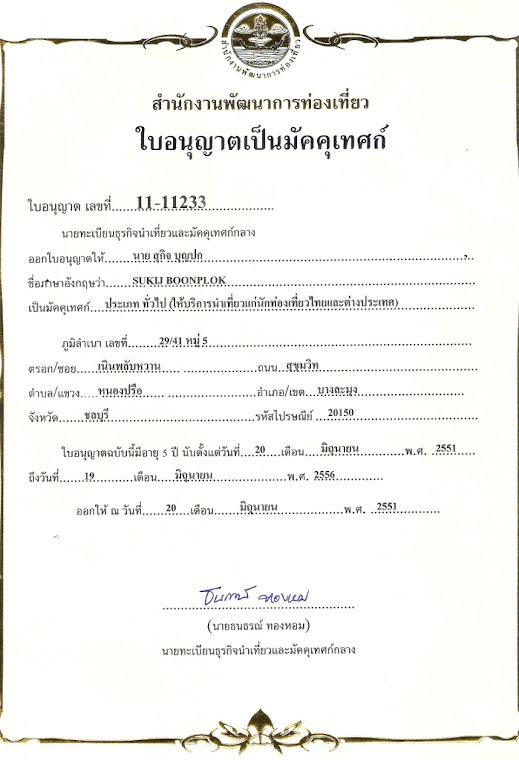 สำนักงานพัฒนาการท่องเที่ยว
สำนักงานพัฒนาการท่องเที่ยว
ใบอนุญาตเป็นมัคคุเทศก์
ใบอนุญาต เลขที่......11-11233................
นายทะเบียนธุรกิจนำเที่ยวและมัคคุเทศก์กลาง
ออกใบอนุญาตให้........นาย สุกิจ บุญปก................
ชื่อภาษาอังกฤษว่า.......SUKIJ BOONPLOK................
เป็นมัคคุเทศก์.....ประเภท ทั่วไป (ให้บริการนำเที่ยวแก่นักท่องเที่ยวไทยและต่างประเทศ)
ภูมิลำเนา เลขที่........29/41 หมู่ 5................
ตรอก/ซอย.......เนินพลับหวาน................ถนน..สุขุมวิท................
ตำบล/แขวง.....หนองปรือ................อำเภอ/เขต.....บางละมุง................
จังหวัด........ชลบุรี................รหัสไปรษณีย์ ....20150................
ใบอนุญาตฉบับนี้มีอายุ 5 ปี นับตั้งแต่วันที่....20....เดือน.....มิถุนายน............พ.ศ. ..2551.....
ถึงวันที่........19..........เดือน.....มิถุนายน................พ.ศ. 2556............
ออกให้ ณ วันที่......20....เดือน........มิถุนายน................พ.ศ. ..2551..........
ธนธรณ์ ทองหอม
(นายธนธรณ์ ทองหอม)
นายทะเบียนธุรกิจนำเที่ยวและมัคคุเทศก์กลาง